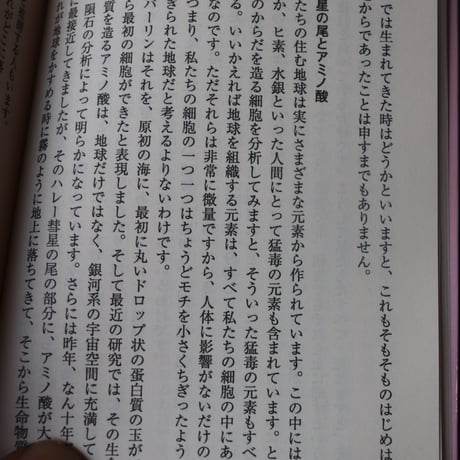 では生まれてきた時はどうかといいますと、これもそもそものはじめは
からであったことは申すまでもありません。
星の尾とアミノ酸
たちの住む地球は実にさまざまな元素から作られています。この中には
か、ヒ素、水銀といった人間にとって猛毒の元素も含まれています。と
のからだを造る細胞を分析してみますと、そういった猛毒の元素もすべ
る。いいかえれば地球を組織する元素は、すべて私たちの細胞の中にあ
なのです。ただそれらは非常に微量ですから、人体に影響がないだけの
つまり、私たちの細胞の一つ一つはちょうどモチを小さくちぎったよう
ぎられた地球だと考えるよりないわけです。
パーリンはそれを、原初の海に、最初に丸いドロップ状の蛋白質の玉が
ら最初の細胞ができたと表現しました。そして最近の研究では、その生
質を造るアミノ酸は、地球だけではなく、銀河系の宇宙空間に充満して
隕石の分析によって明らかになっています。さらには昨年、なん十年
に最接近してきましたが、そのハレー彗星の尾の部分に、アミノ酸が大
れが地球をかすめる時に霧のように地上に落ちてきて、そこから生命物質
する人もいます。